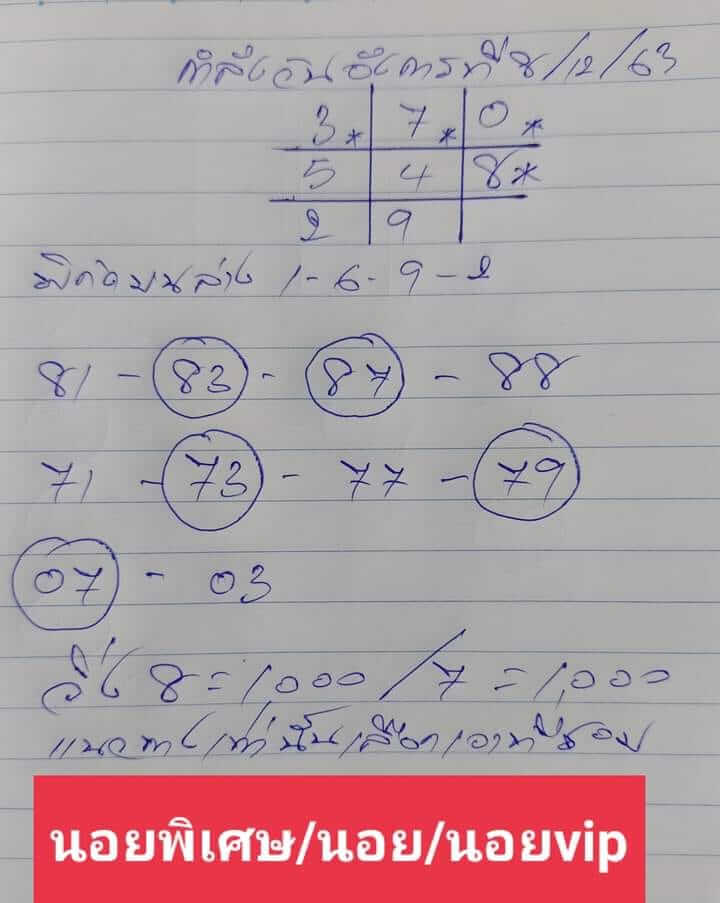 กำลังวันอังคารที่ 8/12/63
3* 7* 0*
5 4 8*
2 9
พิกัดบนล่าง 1-6-9-2
81 - 83 - 87 - 88
71 - 73 - 77 - 79
07 - 03
วิ่ง 8 = 1,000 / 7 = 1,000
แนวทางเท่านั้นเลือกเอาที่ชอบ
นอยพิเศษ/นอย/นอยvip